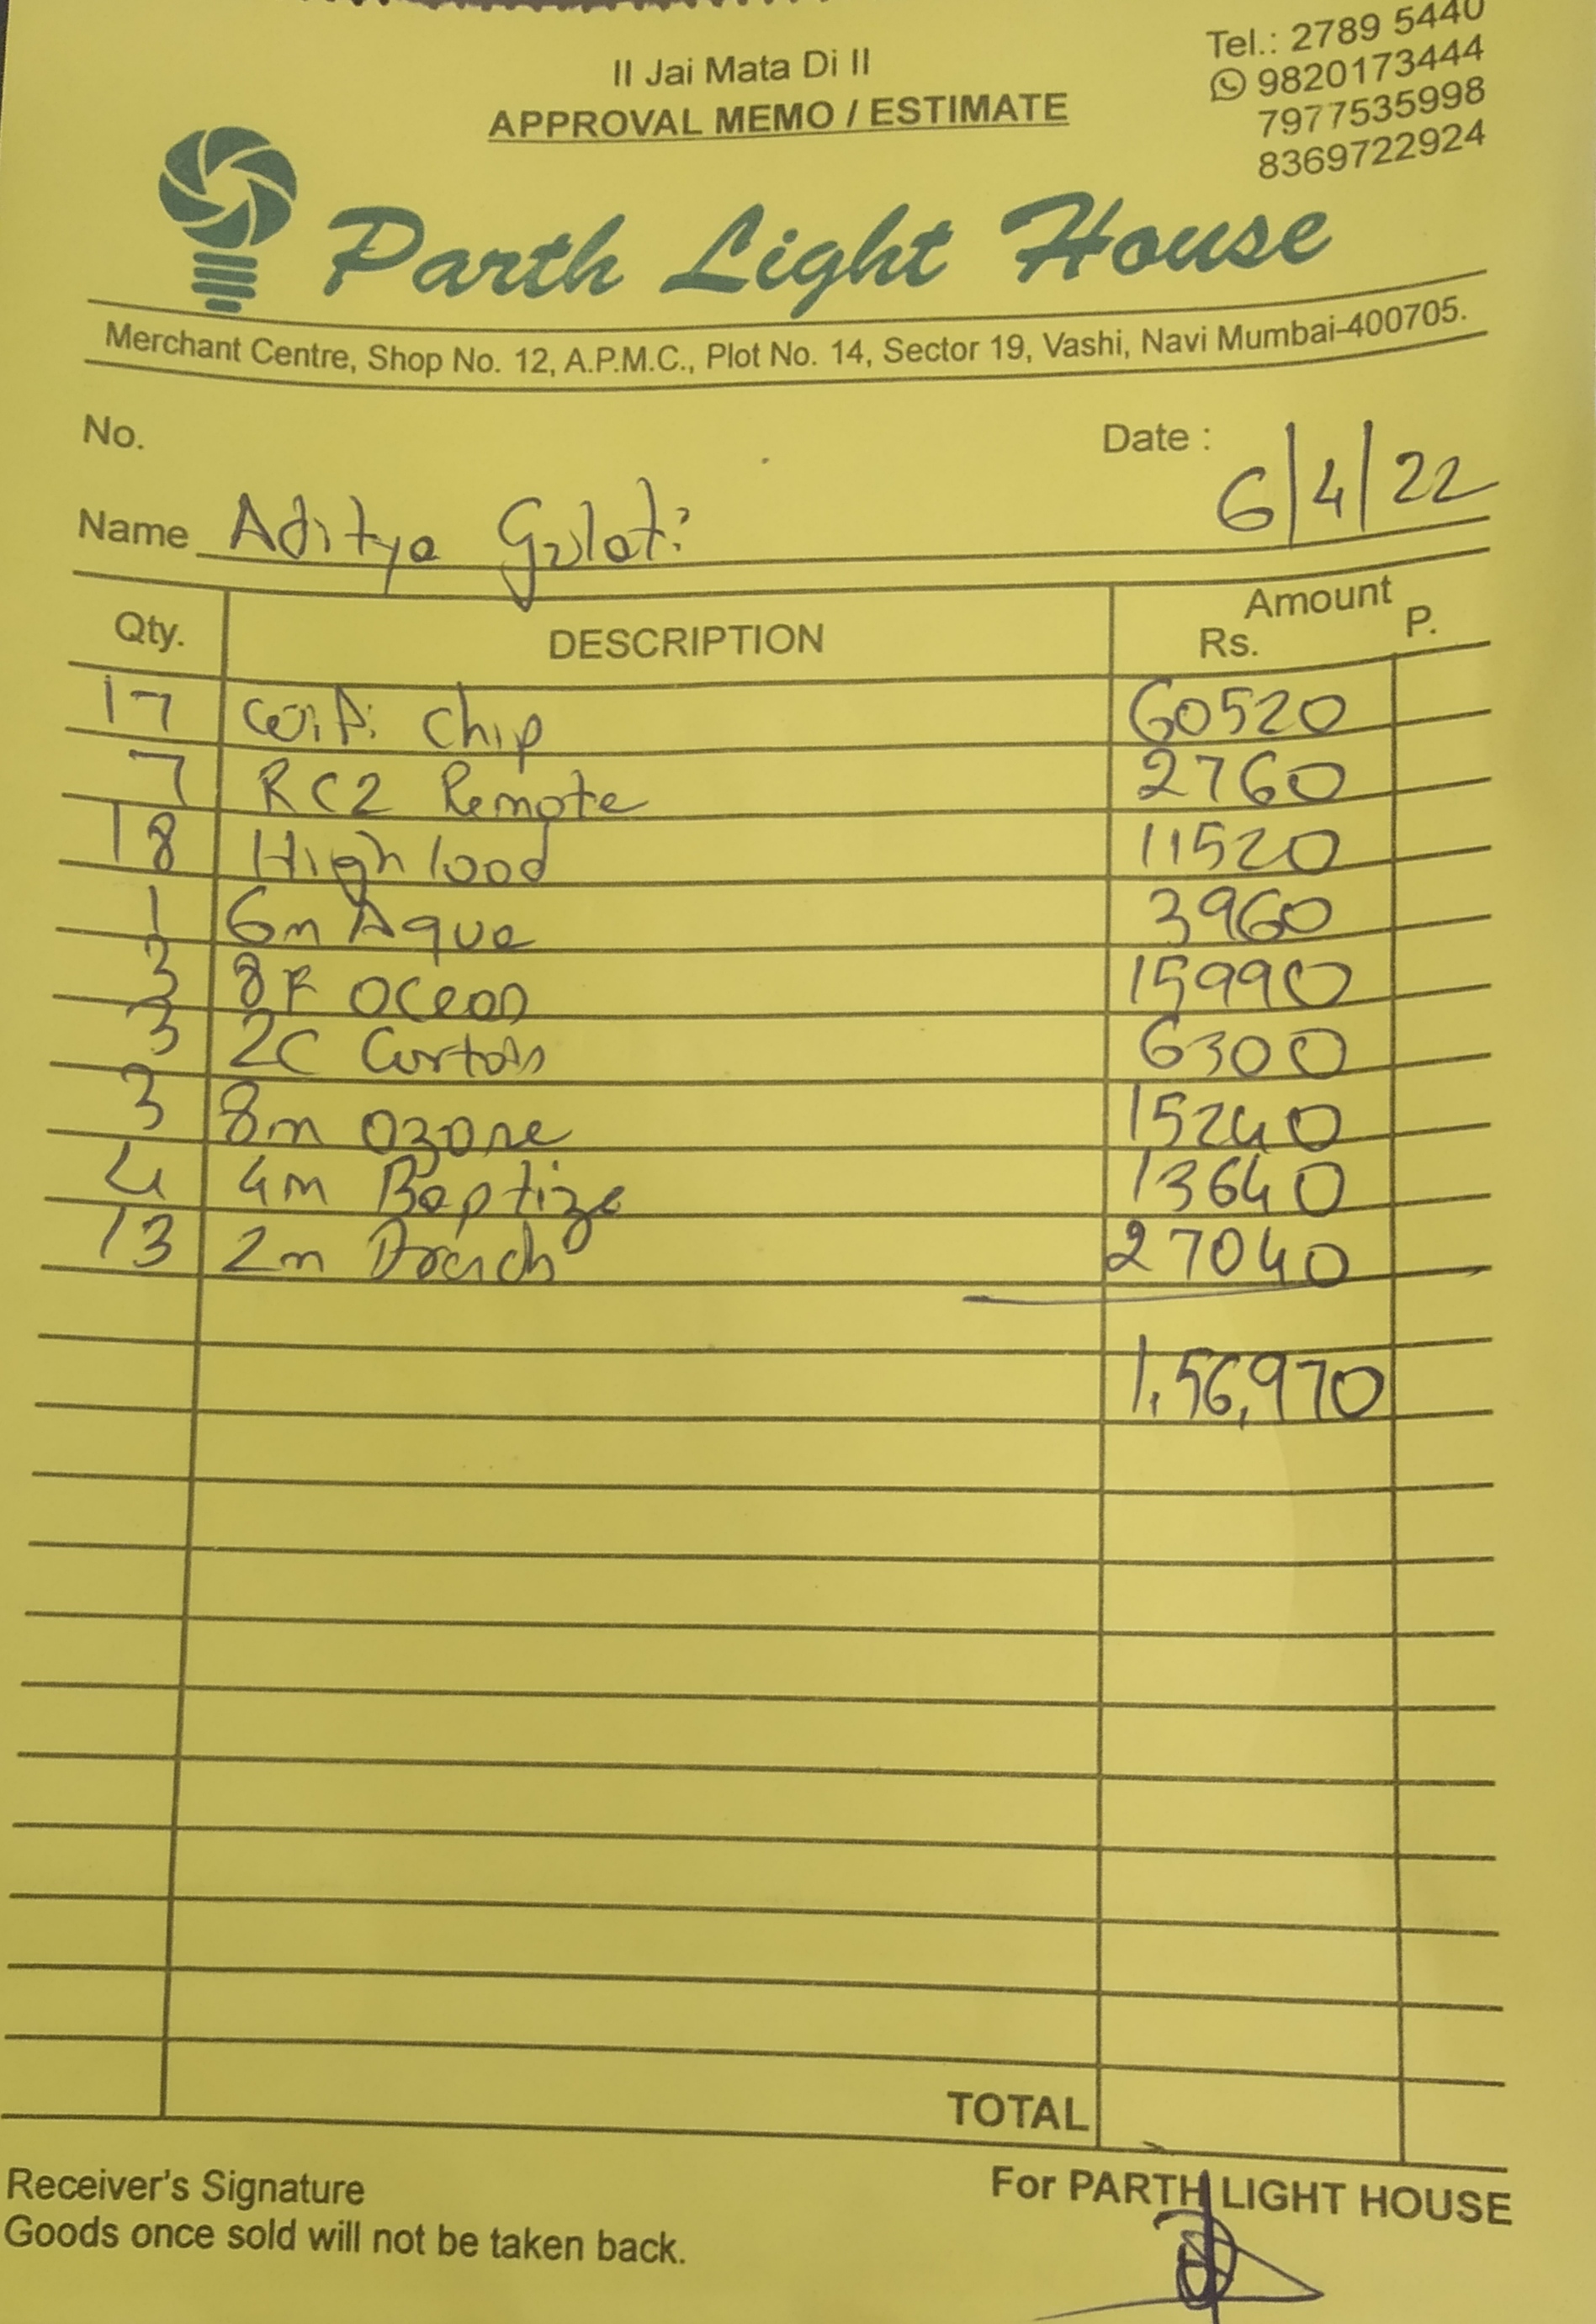 II Jai Mata Di II
APPROVAL MEMO / ESTIMATE
Tel.: 2789 5440
9820173444
7977535998
8369722924
Parth Light House
Merchant Centre, Shop No. 12, A.P.M.C., Plot No. 14, Sector 19, Vashi, Navi Mumbai-400705.
No.
Date : 6/4/22
Name Aditya Gulati
Qty. DESCRIPTION Amount Rs. P.
17 Wifi Chip 60520
7 RC2 Remote 2760
18 High load 11520
1 6m Aqua 3960
3 8F Ocean 15990
3 2C Curtain 6300
3 8m Ozone 15240
4 4m Baptize 13640
13 2m 27040
1,56,970
TOTAL
Receiver's Signature
For PARTH LIGHT HOUSE
Goods once sold will not be taken back.